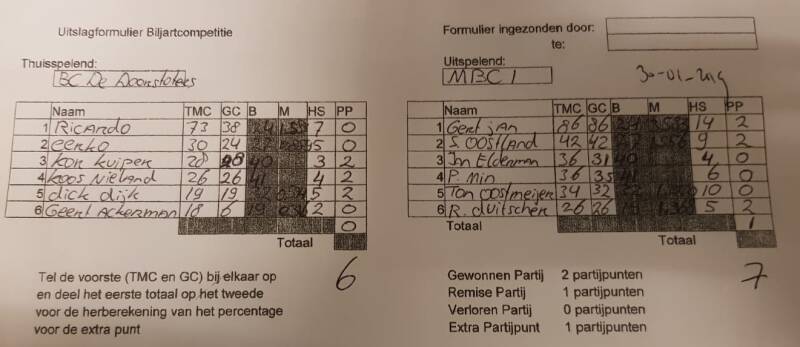 Uitslagformulier Biljartcompetitie
Formulier ingezonden door:
te:
Thuisspelend:
BC De Doorstoters
Uitspelend:
MBC 1
30-01-2019
Naam TMC GC B M HS PP
1 Ricardo 73 38 7 0
2 eerko 30 24 27 5 0
3 Kon Kuiper 28 28 40 3 2
4 Koos Nieland 26 26 41 4 2
5 dick dijk 19 19 5 2
6 Geert Ackerman 18 6 19 2 0
0
Totaal
6
Naam TMC GC B M HS PP
1 Gert jan 86 86 14 2
2 S. Oostland 42 42 27 9 2
3 Jan Elderman 36 31 40 4 0
4 P. Min 36 35 41 6 0
5 Ton Oostmeijer 34 32 10 0
6 R. duitscher 26 26 1,36 5 2
Totaal 1
Totaal
7
Tel de voorste (TMC en GC) bij elkaar op
en deel het eerste totaal op het tweede
voor de herberekening van het percentage
voor de extra punt
Gewonnen Partij 2 partijpunten
Remise Partij 1 partijpunten
Verloren Partij 0 partijpunten
Extra Partijpunt 1 partijpunten